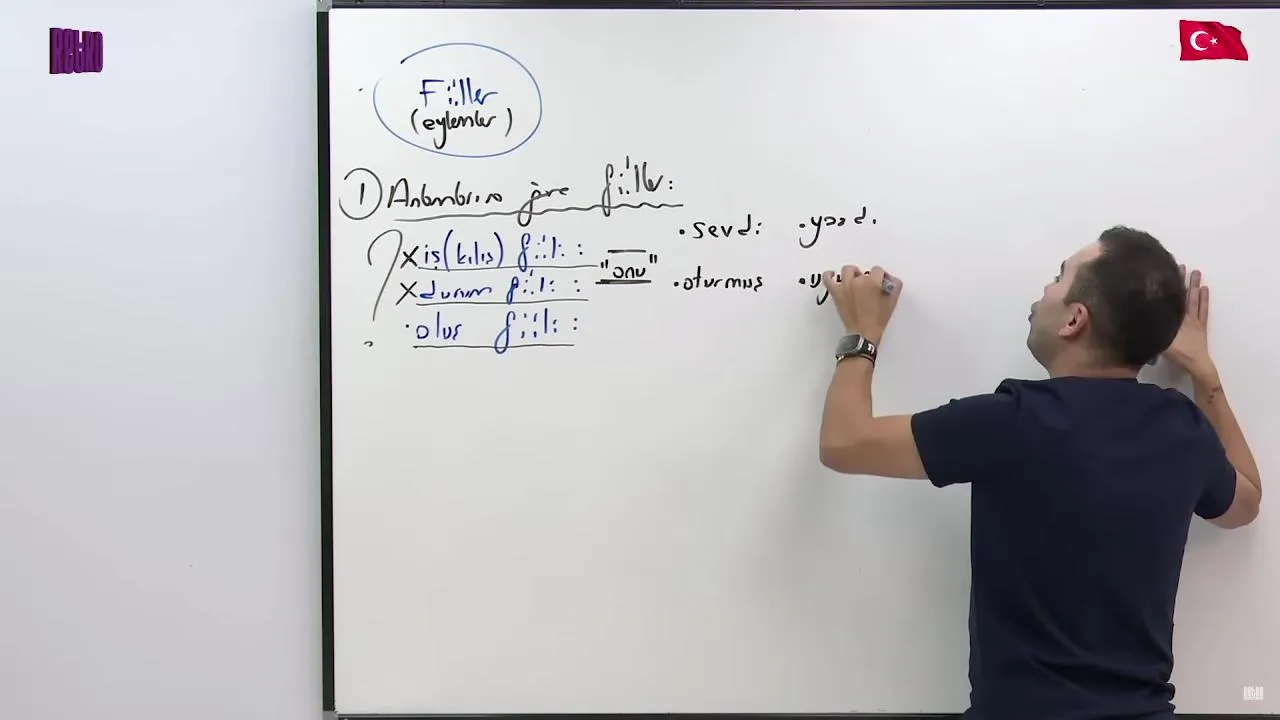 RETRO
Fiiller
(eylemler)
① Anlamlarına göre fiiller:
X iş(kılış) fiili:
"onu"
X durum fiili:
• oluş fiili:
• sevdi • yazdı
• oturmuş
RETRO